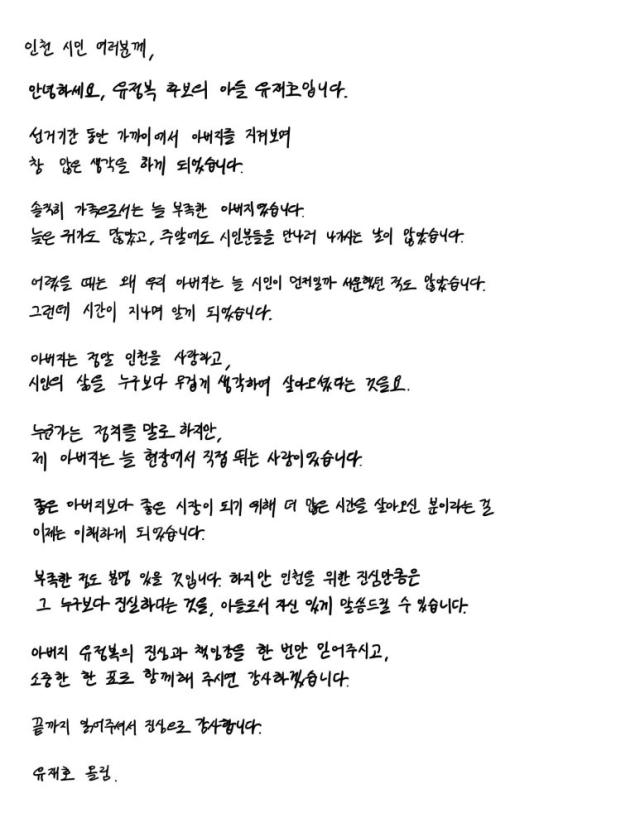 인천 시민 여러분께,
안녕하세요, 유정복 후보의 아들 유재호입니다.
선거기간 동안 가까이에서 아버지를 지켜보며
참 많은 생각을 하게 되었습니다.
솔직히 가족으로서는 늘 부족한 아버지였습니다.
늦은 귀가도 많았고, 주말에도 시민분들을 만나러 나가시는 날이 많았습니다.
어렸을 때는 왜 우리 아버지는 늘 시민이 먼저일까 서운했던 적도 많았습니다.
그런데 시간이 지나며 알게 되었습니다.
아버지는 정말 인천을 사랑하고,
시민의 삶을 누구보다 무겁게 생각하며 살아오셨다는 것을요.
누군가는 정치를 말로 하지만,
제 아버지는 늘 현장에서 직접 뛰는 사람이었습니다.
좋은 아버지보다 좋은 시장이 되기 위해 더 많은 시간을 살아오신 분이라는 걸
이제는 이해하게 되었습니다.
부족한 점도 분명 있을 것입니다. 하지만 인천을 위한 진심만큼은
그 누구보다 진실하다는 것을, 아들로서 자신 있게 말씀드릴 수 있습니다.
아버지 유정복의 진심과 책임감을 한 번만 믿어주시고,
소중한 한 표로 함께해 주시면 감사하겠습니다.
끝까지 읽어주셔서 진심으로 감사합니다.
유재호 올림.